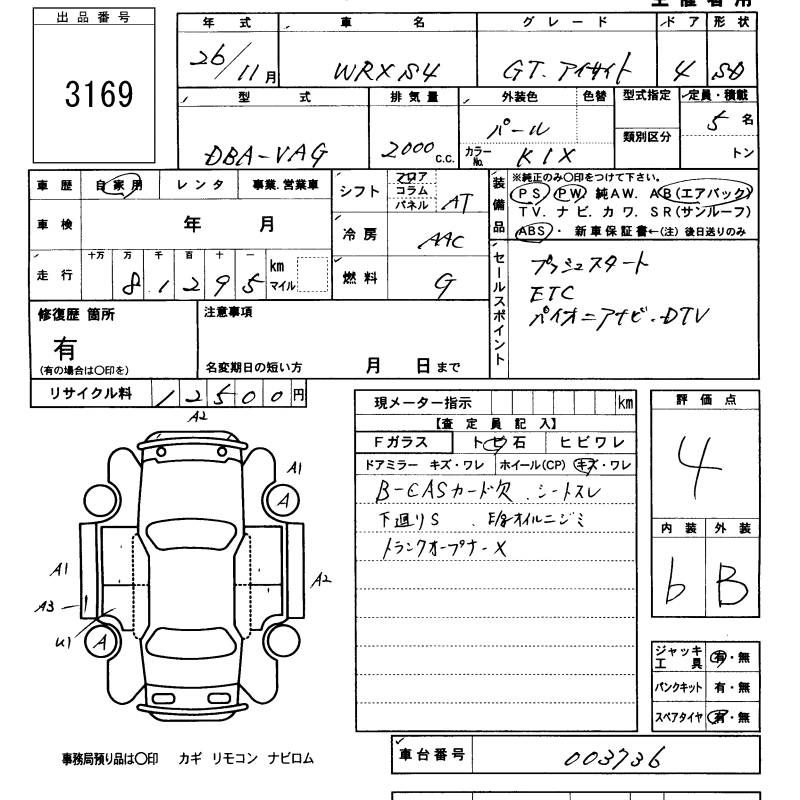 出品番号
3169
年式 車名 グレード ドア 形状
26/11月 WRX S4 GT.アイサイト 4 SD
型式 排気量 外装色 色替 型式指定 定員・積載
DBA-VAG 2000 c.c. パール 類別区分 5名
カラーNo. K1X トン
車歴 自家用 レンタ 事業.営業車
車検 年 月
走行 十万 万 千 百 十 一
8 1 2 9 5 km マイル
シフト フロア コラム パネル AT
冷房 AAC
燃料 G
装備品
※純正のみ〇印をつけて下さい。
PS PW. 純AW. AB(エアバック)
TV. ナビ. カワ. SR(サンルーフ)
ABS ・ 新車保証書←(注) 後日送りのみ
セールスポイント
プッシュスタート
ETC
パイオニアナビ.DTV
修復歴 箇所
有
(有の場合は〇印を)
注意事項
名変期日の短い方 月 日まで
リサイクル料 12500円
現メーター指示 km
【査定員記入】
Fガラス トビ石 ヒビワレ
ドアミラー キズ・ワレ ホイール(CP) キズ・ワレ
B-CASカード欠 . シートスレ
下廻りS . E/gオイルニジミ
トランクオープナーX
評価点
4
内装 外装
b B
ジャッキ工具 有・無
パンクキット 有・無
スペアタイヤ 有・無
A2
A1
A
A1
A2
A3
U1
A
事務局預り品は〇印 カギ リモコン ナビロム
車台番号 003736